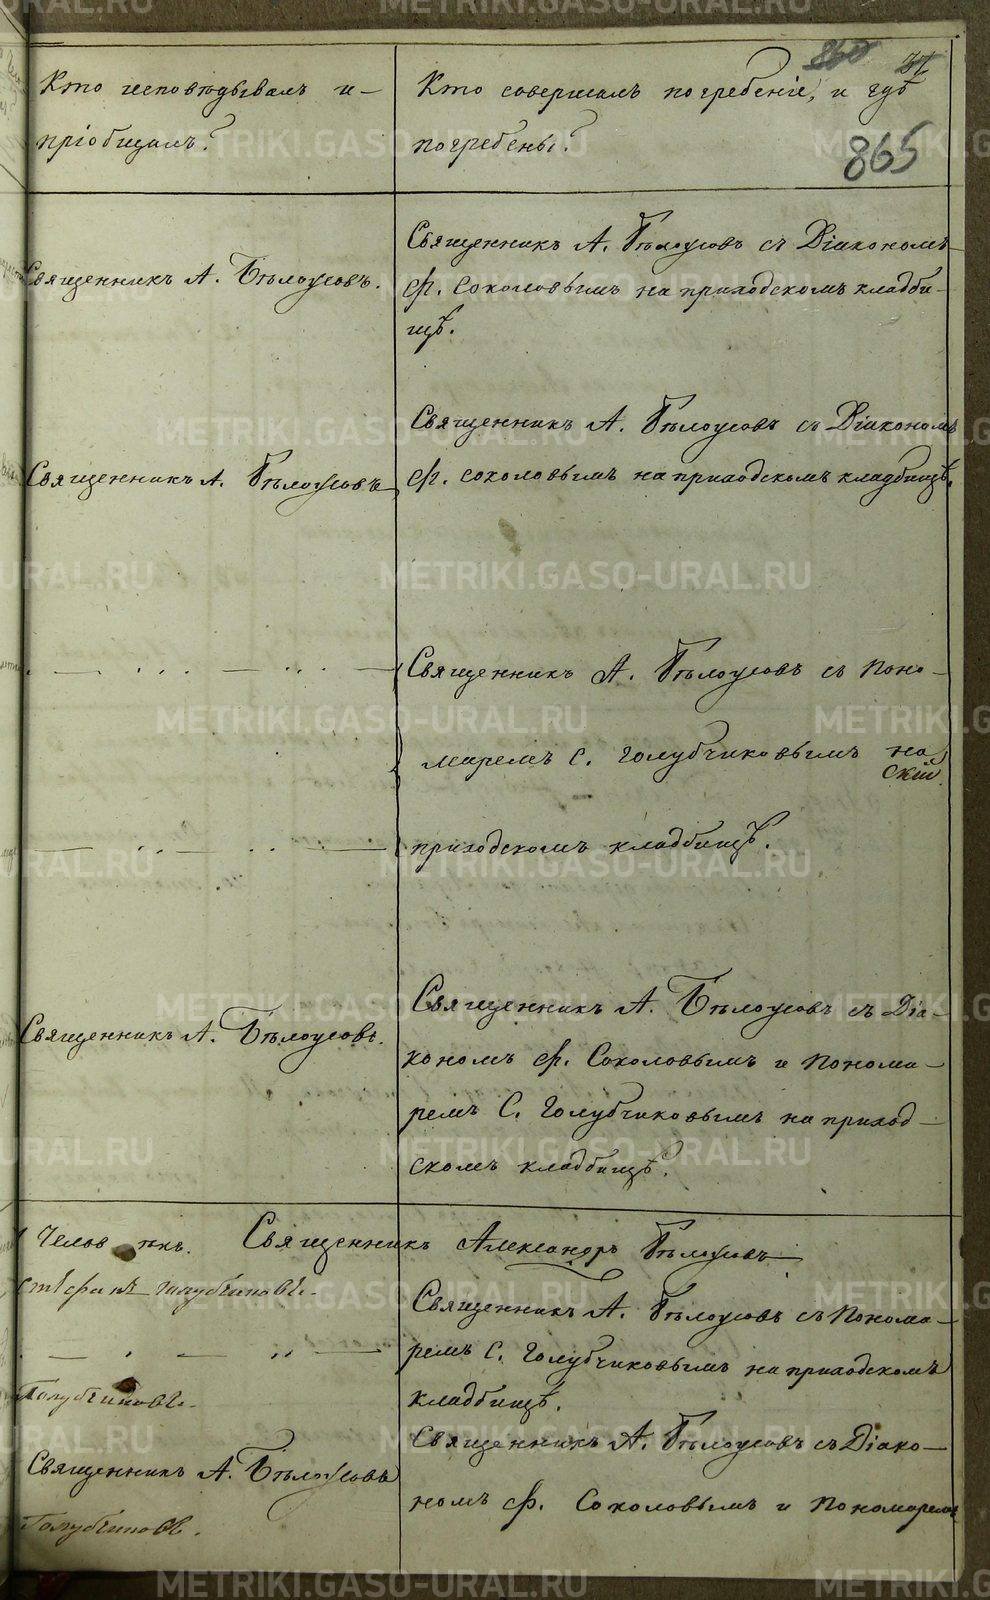 860 37
865
Кто исповѣдывалъ и
пріобщалъ?
Кто совершалъ погребеніе, и гдѣ
погребены?
Священникъ А. Бѣлоусовъ.
Священникъ А. Бѣлоусовъ съ Діакономъ
Ф. Соколовымъ на приходскомъ кладби-
щѣ.
Священникъ А. Бѣлоусовъ
Священникъ А. Бѣлоусовъ съ Діакономъ
Ф. Соколовымъ на приходскомъ кладбищѣ.
Священникъ А. Бѣлоусовъ съ Поно-
маремъ С. Голубчиковымъ на
скій
приходскомъ кладбищѣ.
Священникъ А. Бѣлоусовъ.
Священникъ А. Бѣлоусовъ съ Діа-
кономъ Ф. Соколовымъ и Понома-
ремъ С. Голубчиковымъ на приход-
скомъ кладбищѣ.
Человѣкъ. Священникъ Александръ Бѣлоусовъ
Стефанъ Голубчиковъ.
Священникъ А. Бѣлоусовъ съ Понома-
ремъ С. Голубчиковымъ на приходскомъ
кладбищѣ.
Голубчиковъ.
Священникъ А. Бѣлоусовъ
Священникъ А. Бѣлоусовъ съ Діако-
номъ Ф. Соколовымъ и Пономаремъ
Голубчиковъ.
METRIKI.GASO-URAL.RU